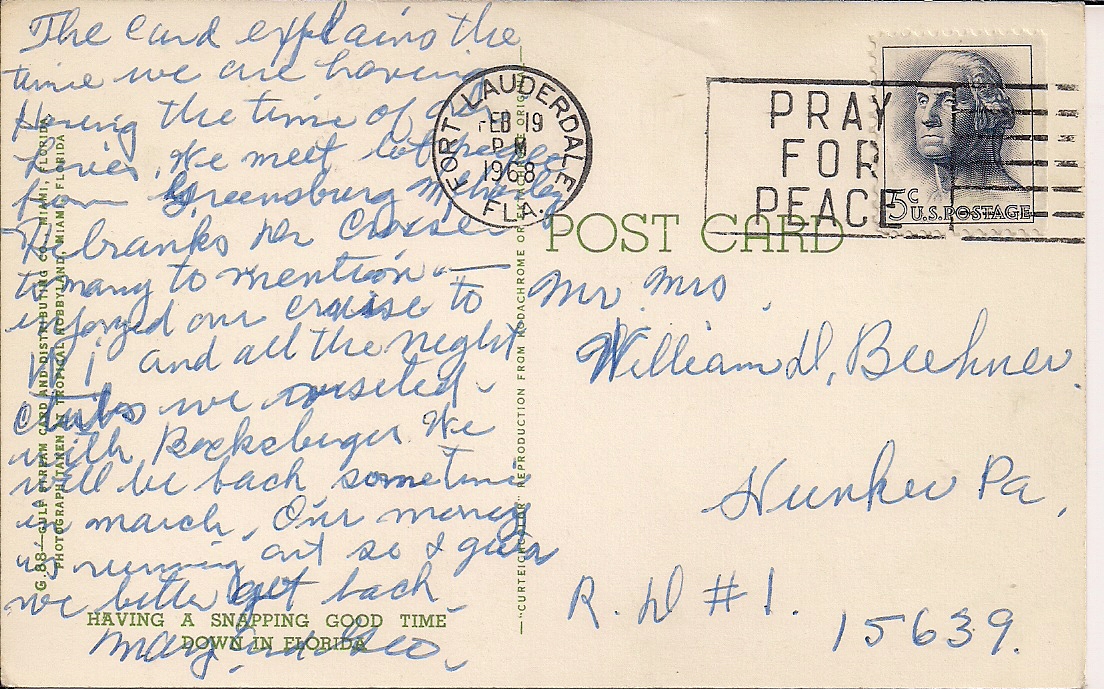 The card explains the
time we are having
Having the time of our
lives. We meet lot people
from Greensburg
to many to mention
enjoyed our cruise to
and all the night
Clubs we viseted
with We
will be back sometime
in march, Our money
is running out so I guess
we better get back
Mary and Geo
HAVING A SNAPPING GOOD TIME
DOWN IN FLORIDA
G.88—GULF STREAM CARD AND DISTRIBUTING CO., MIAMI, FLORIDA
PHOTOGRAPH TAKEN AT TROPICAL HOBBYLAND, MIAMI, FLORIDA
"CURTEICHCOLOR" REPRODUCTION FROM KODACHROME OR
FORT LAUDERDALE
FEB 19
PM
1968
FLA.
PRAY
FOR
PEACE
5c U.S. POSTAGE
POST CARD
Mr Mrs
William D. Beehner.
Hunker Pa.
R. D #1.
15639.